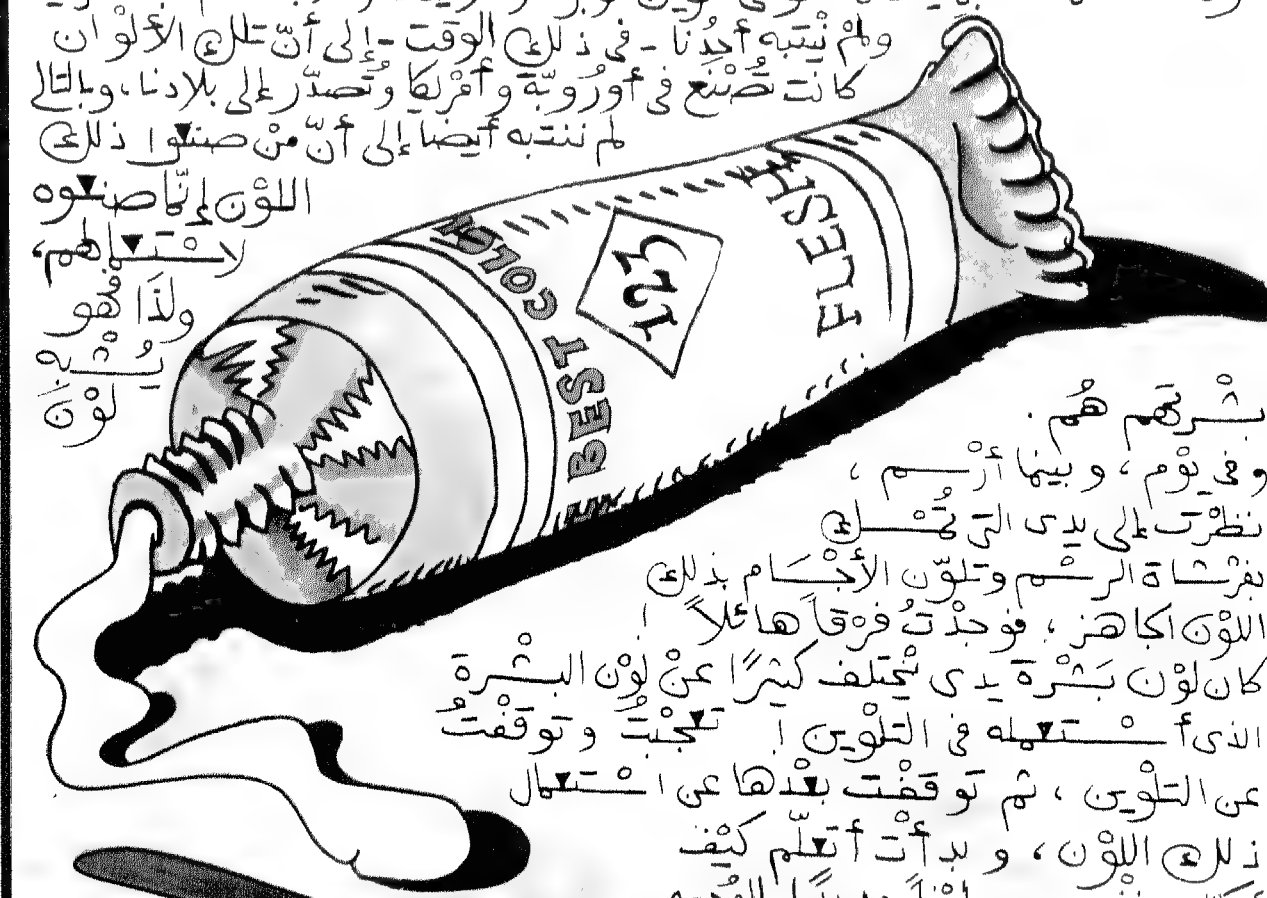 ولمْ ينْتبه أحدُنا - فى ذلك الوقت - إلى أنّ تلك الألْوان
كانت تُصْنع فى أوروبّة وأمْريكا وتُصدّر إلى بلادنا، وبالتالى
لم ننتبه أيضا إلى أنّ منْ صنعوا ذلك
اللوْن إنّما صنعوه
لاسْتعمالهم،
ولذَا فهو
يُشْبه
لوْن
بشْرتهم هُم.
وفى يوْم، وبينما أرْسم،
نظرْت إلى يدى التى تُمْسك
بفرْشاة الرسْم وتلوّن الأجْسام بذلك
اللوْن الجاهز، فوجدْتُ فرْقاً هائلاً !
كان لوْن بَشْرة يدى يخْتلف كثيرًا عنْ لوْن البشْرة
الذى أسْتعمله فى التلْوين ! تعجّبْتُ وتوقّفْتُ
عن التلْوين، ثم توقفْت بعْدها عن اسْتعمال
ذلك اللوْن، وبدأْت أتعلّم كيْف
BEST COLOUR
123
FLESH